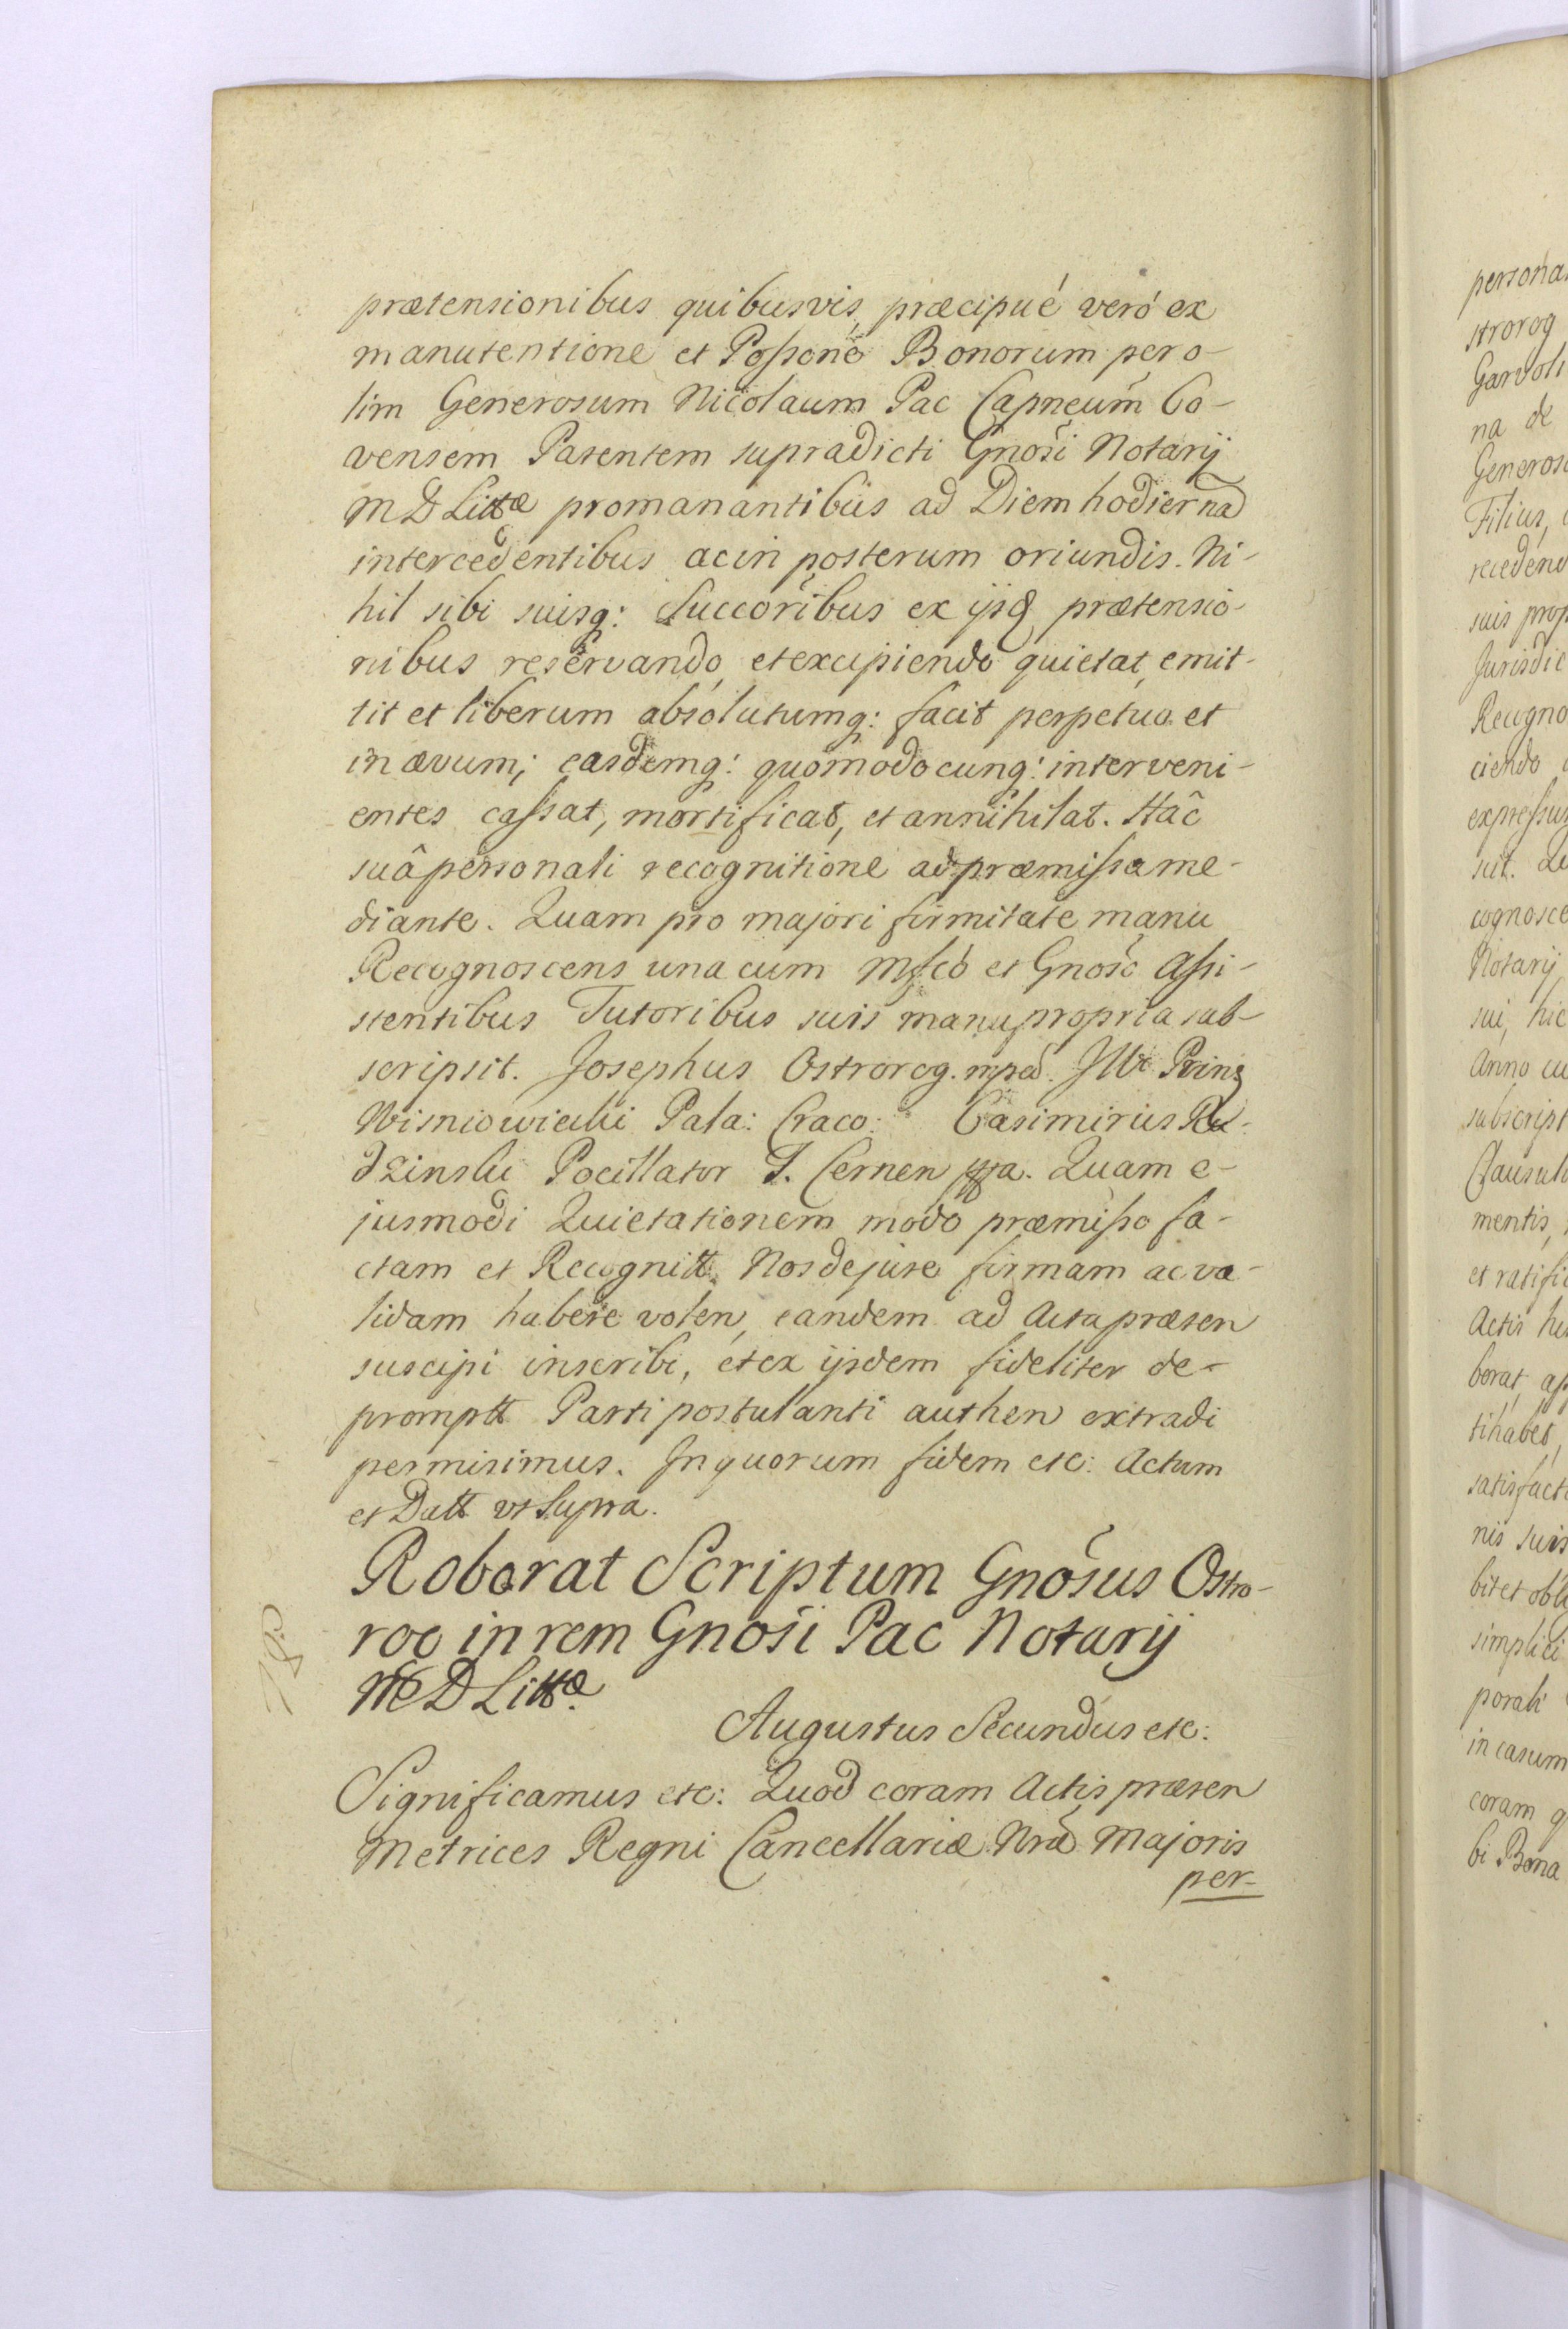 prætensionibus quibusvis, præcipué veró ex
manutentione et Poſsonẽ Bonorum per o-
lim Generosum Nicolaum Pac Capneum̃ Co-
vensem Parentem supradicti Gnosi Notarij
M D Littæ promanantibus ad Diem hodiernã
intercedentibus ac in posterum oriundis. Ni-
hil sibi suisq: Succoribus ex ijsd prætensio-
nibus reservando, et excipiendo quietat, emit-
tit et liberum absolutumq: facit perpetuo et
in ævum; easdemq: quomodocunq: interveni-
entes caſsat, mortificat, et annihilat. Hâc
suâ personali recognitione ad præmiſsa me-
diante. Quam pro majori firmitate manu
Recognoscens una cum Mfco et Gnoso Aſsi-
stentibus Tutoribus suis manu propria sub-
scripsit. Josephus Ostrorog. mpa. Prinꝫ
Wisniowiecki Pala: Craco: Casimirus Ru-
dzinski Pocillator T. Cernen Quam e-
jusmodi Quietationem modo præmiſso fa-
ctam et Recognitt. Nos de jure firmam ac va-
lidam habere volen, eandem ad Acta præsen
suscipi inscribi, et ex ijsdem fideliter de-
promptt Parti postulanti authen extradi
permisimus. In quorum fidem etc: Actum
et Datt vt Supra.
Roborat Scriptum Gnosus Ostro-
rog in rem Gnosi Pac Notarij
M D Littæ.
Augustus Secundus etc:
Significamus etc: Quod coram Actis præsen
Metrices Regni Cancellariæ Nræ Majoris
per-
persona
strorog
Garvoli
na de
Generos
Filius,
recedend
suis prop
Jurisdic
Recogno
ciendo
expreſsu
sit.
cognosce
Notarij
sui, hic
Anno cu
subscript
Clausul
mentis,
et ratific
Actis hu
borat,
tihabet,
satisfact
nis suis
bit et obli
simplici
porali
in casum
coram q
bi Bona